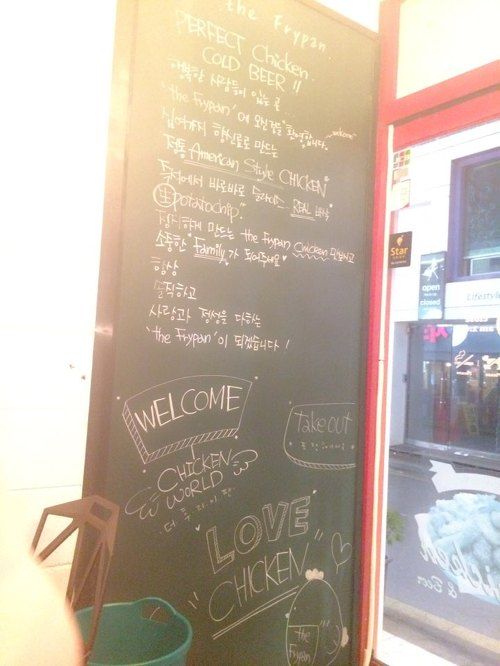 the Frypan
PERFECT Chicken.
COLD BEER !!
행복한 사람들이 있는 곳
'the Frypan'에 오신걸 "환영합니다. welcome"
십여가지 향신료로 만드는
정통 American Style CHICKEN
즉석에서 바로바로 슬라이스 REAL
生potatochip.
정직하게 만드는 the Frypan Chicken 맛보시고
소중한 "Family"가 되어주세요
항상
정직하고
사랑과 정성을 다하는
'the Frypan'이 되겠습니다!
WELCOME
CHICKEN
WORLD
더 후라이팬
take out
LOVE
CHICKEN
the
Frypan
Star
open
closed
Lifestyle
& Beer